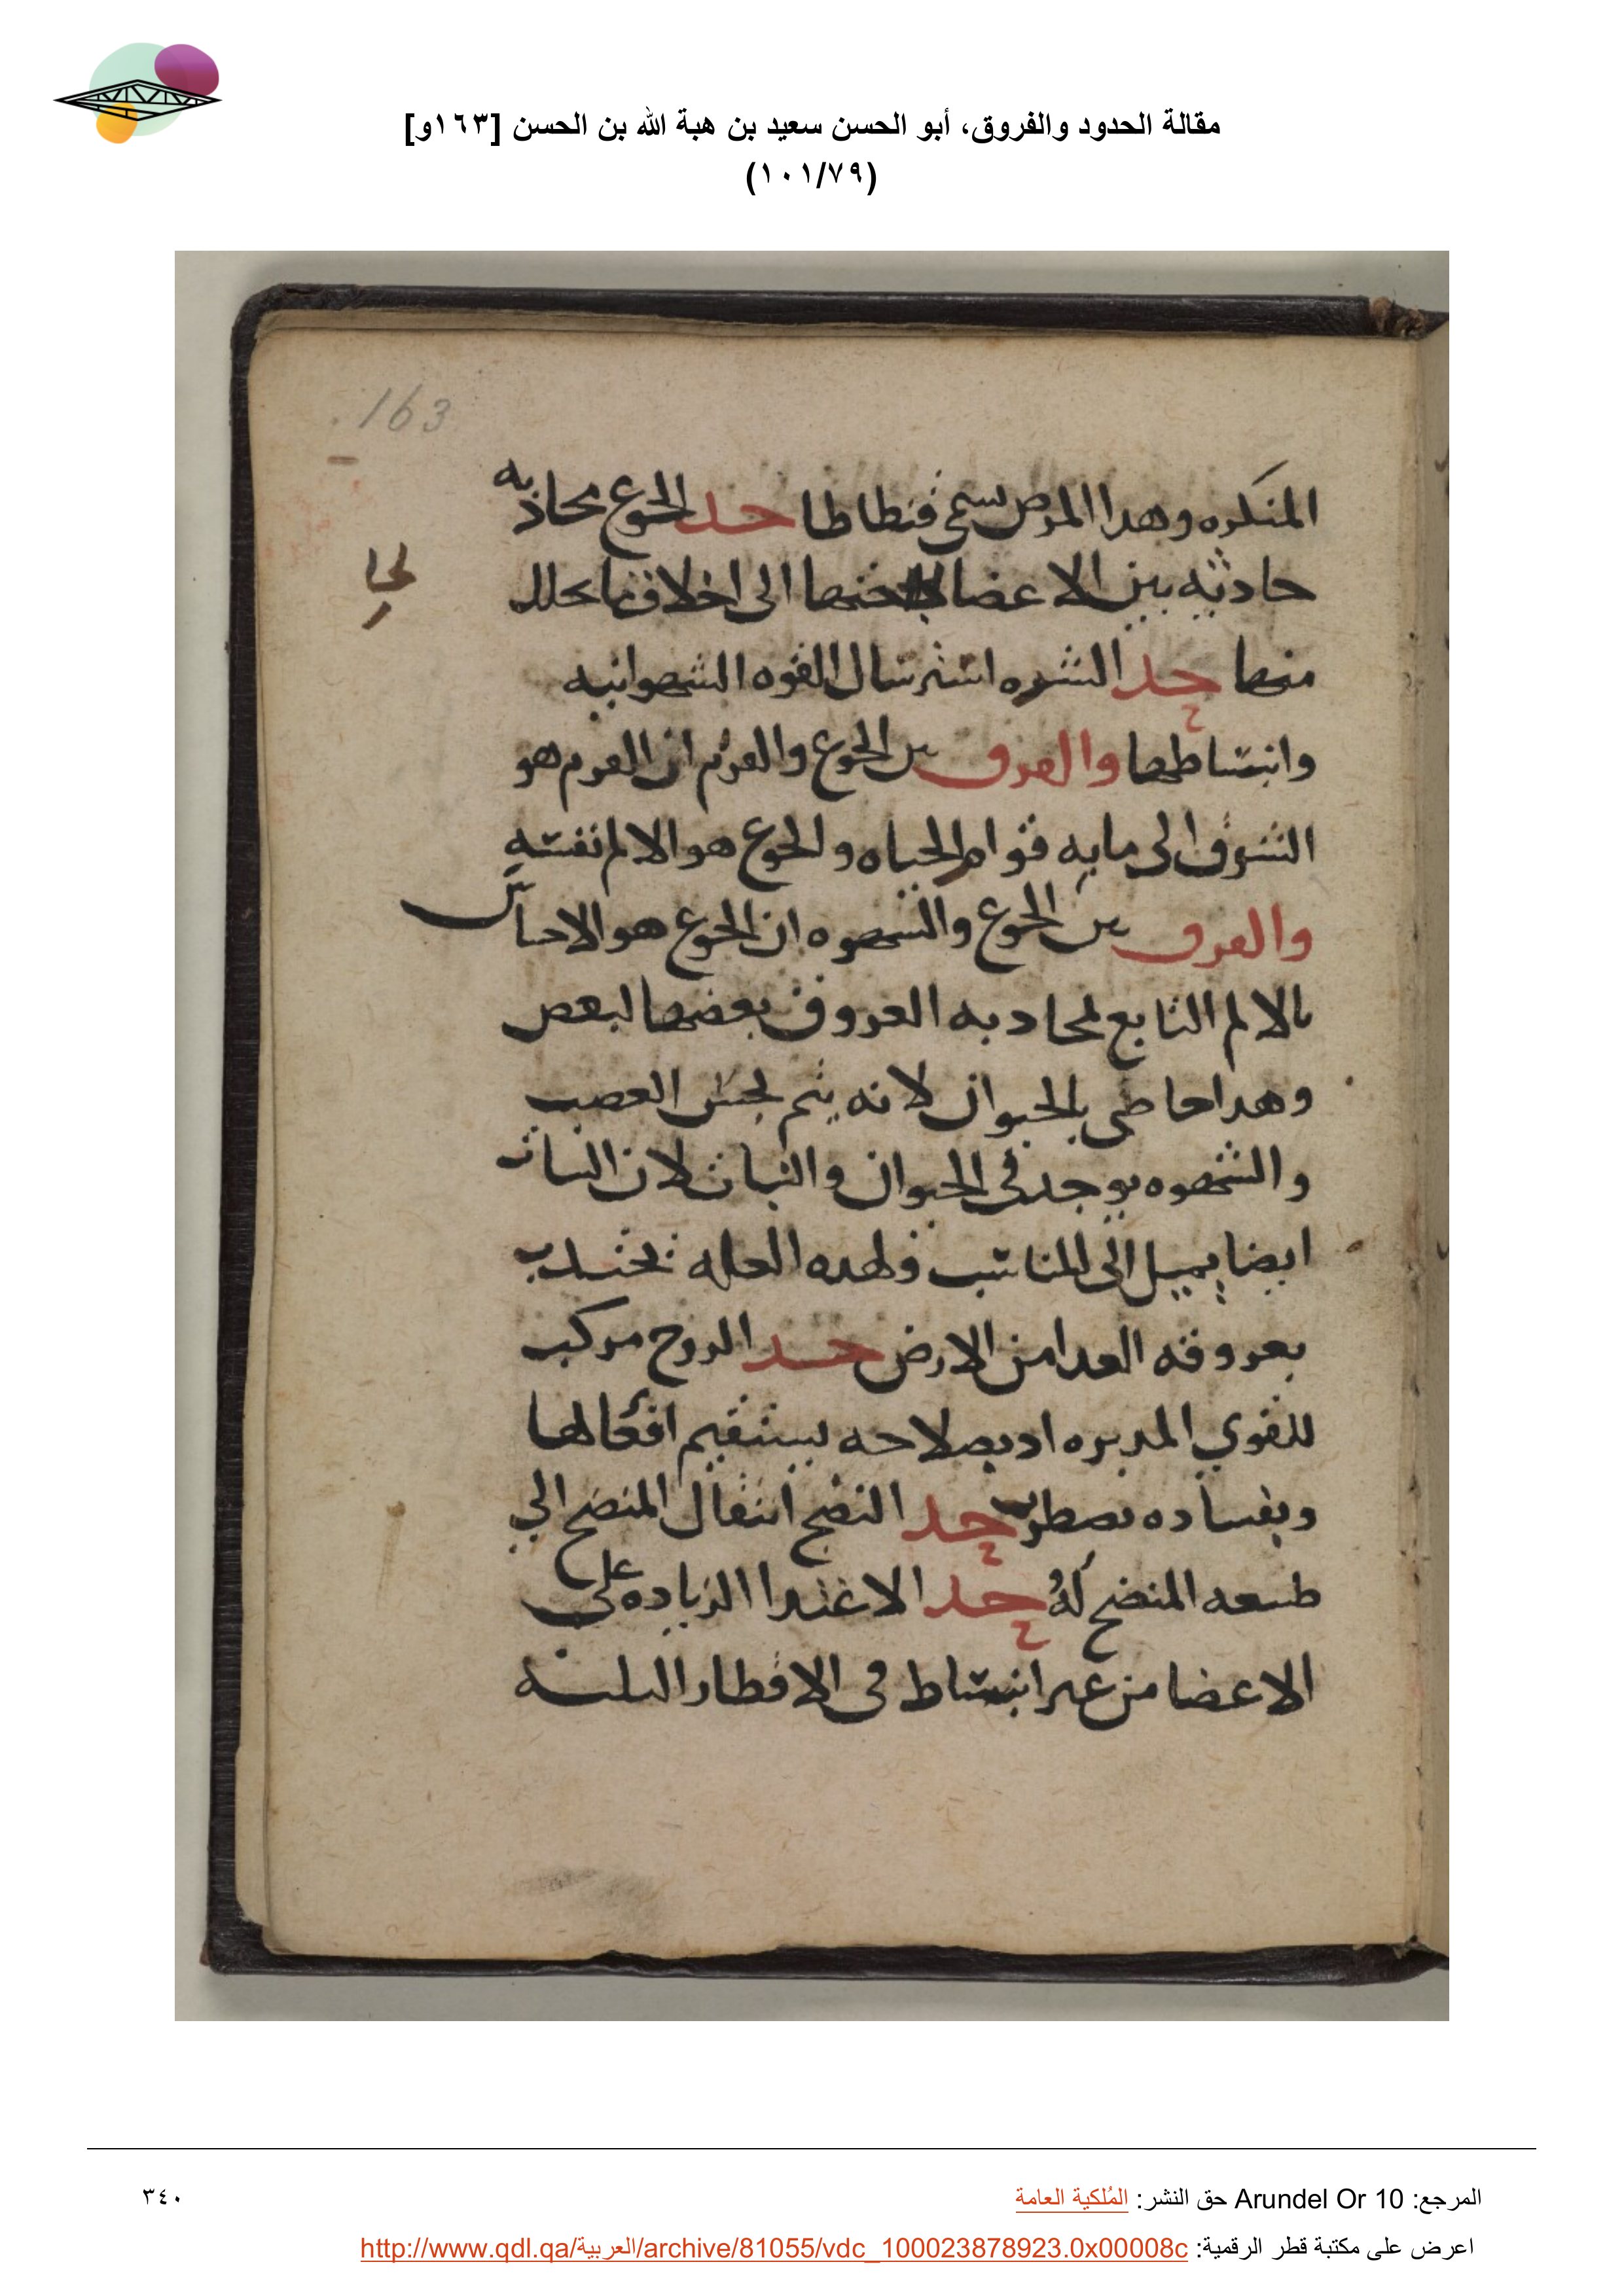 مقالة الحدود والفروق، أبو الحسن سعيد بن هبة الله بن الحسن [١٦٣و]
(١٠١/٧٩)
163
المنكره وهدا المرض سمى قنطاطا حد الجوع محاذبه
حادثه بين الاعضا الى اخلاف ما تحلل
لحا
منها حد الشره استرسال القوه الشهوانيه
وانبساطها والفرق بين الجوع والقرم ان القرم هو
الشوق الى ما به قوام الحياه والجوع هو الالم نفسه
والفرق بين الجوع والشهوه ان الجوع هو الاحساس
بالالم التابع لمحاذبه العروق بعضها لبعض
وهدا خاص بالحيوان لانه يتم بحس العصب
والشهوه يوجد في الحيوان والنبات لان النبات
ايضا يميل الى المناسب ولهده العله يجتدب
بعروقه الغدا من الارض حد الروح مركب
للقوي المدبره اد بصلاحه يستقيم افعالها
وبفساده يضطرب حد النضج انتقال المنضج الي
طبيعه المنضج له حد الاغتدا الزياده على
الاعضا من غير انبساط في الاقطار الثلثه
المرجع: Arundel Or 10 حق النشر: المُلكية العامة
٣٤٠
اعرض على مكتبة قطر الرقمية: http://www.qdl.qa/العربية/archive/81055/vdc_100023878923.0x00008c